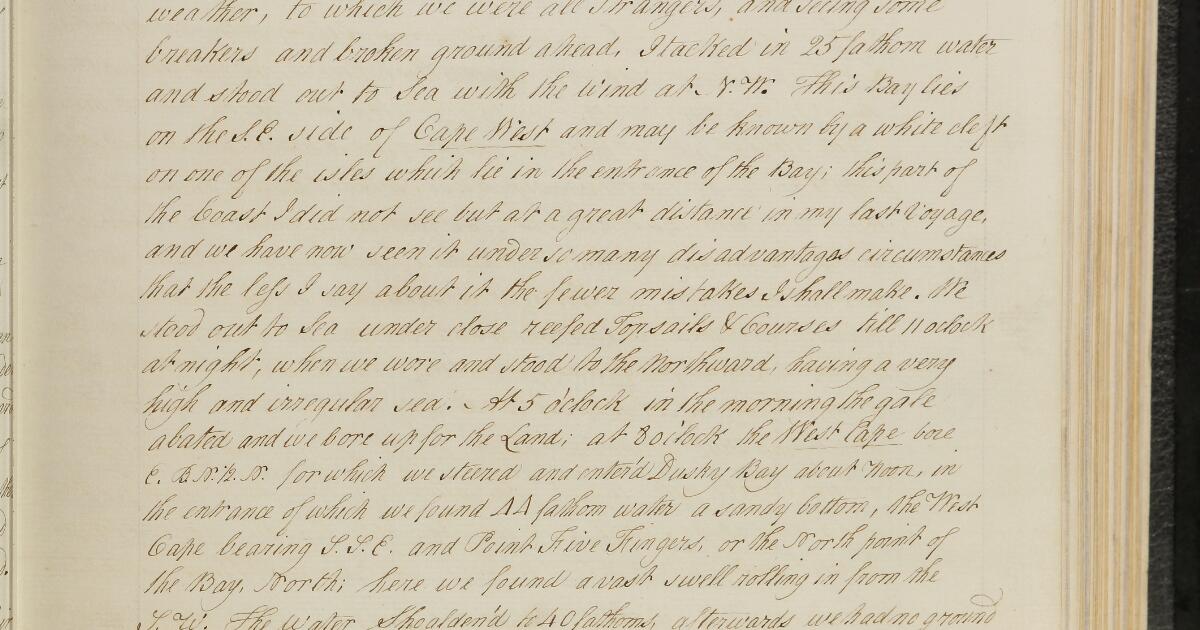 weather, to which we were all strangers, and seeing some
breakers and broken ground ahead, I tacked in 25 fathom water
and stood out to Sea with the wind at N.W. This Bay lies
on the S.E. side of Cape West and may be known by a white cleft
on one of the isles which lie in the entrance of the Bay; this part of
the Coast I did not see but at a great distance in my last Voyage,
and we have now seen it under so many disadvantages circumstances
that the less I say about it the fewer mistakes I shall make. We
stood out to Sea under close reefed Topsails & Courses till 11 oclock
at night, when we wore and stood to the Northward, having a very
high and irregular sea. At 5 o'clock in the morning the gale
abated and we bore up for the Land; at 8 o'clock the West Cape bore
E. B. N. ½ N. for which we steered and enter'd Dusky Bay about Noon, in
the entrance of which we found 44 fathom water a sandy bottom, the West
Cape bearing S.S.E. and Point Five Fingers, or the North point of
the Bay, North; here we found a vast swell rolling in from the
S.W. The water Shoalden'd to 40 fathoms, afterwards we had no ground